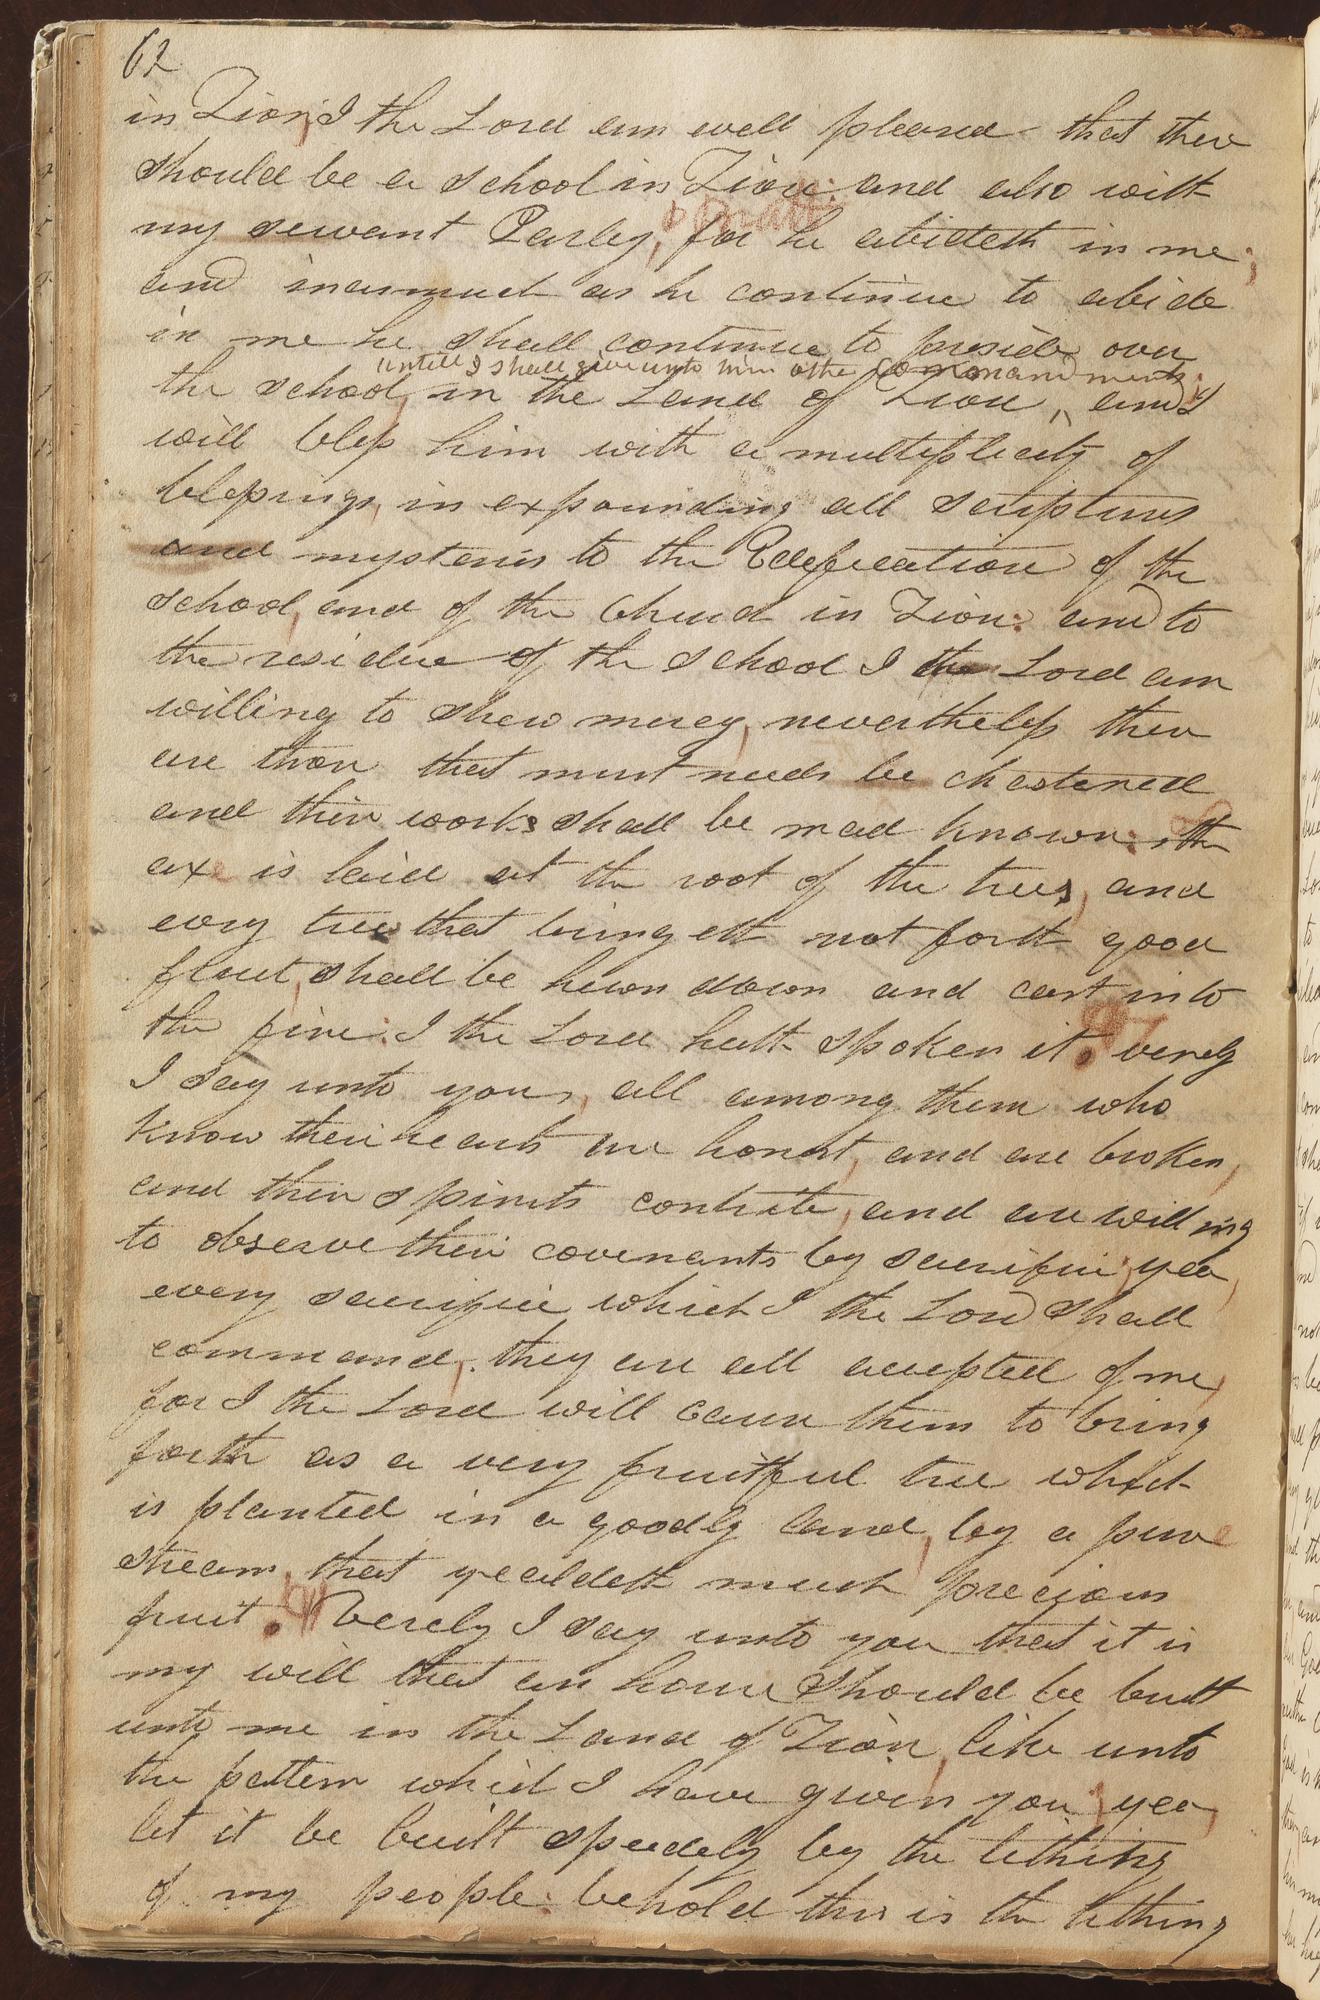 62
in Zion, I the Lord am well pleased that there
should be a school in Zion: and also with
my servant Parley, for he abideth in me;
P Pratt
and inasmuch as he continue to abide
in me he shall continue to preside over
untill I shall give unto him other commandments;
the school, in the Land of Zion, and I
will bless him with a multiplicity of
blessings, in expounding all scriptures
and mysteries to the Edefication of the
school, and of the Church in Zion: and to
the residue of the school I the Lord am
willing to shew mercy, nevertheless there
are those that must needs be chastened
and their works shall be mad known: the
axe is laid at the root of the trees, and
evry tree that bringeth not forth good
fruit, shall be hewn down and cast into
the fire: I the Lord hath spoken it. verely
I say unto you, all among them who
know their hearts are honest, and are broken,
and their spirits contrite, and are willing
to observe their covenants by sacrifice, yea,
every sacrifice which I the Lord shall
command, they are all accepted of me,
for I the Lord will cause them to bring
forth as a very fruitful tree which
is planted in a goodly land, by a pure
stream, that yealdeth much precious
fruit. Verely I say unto you that it is
my will that an house should be built
unto me in the Land of Zion, like unto
the pattern which I have given you, yea,
let it be built speedely by the tithing
of my people: behold this is the tithing